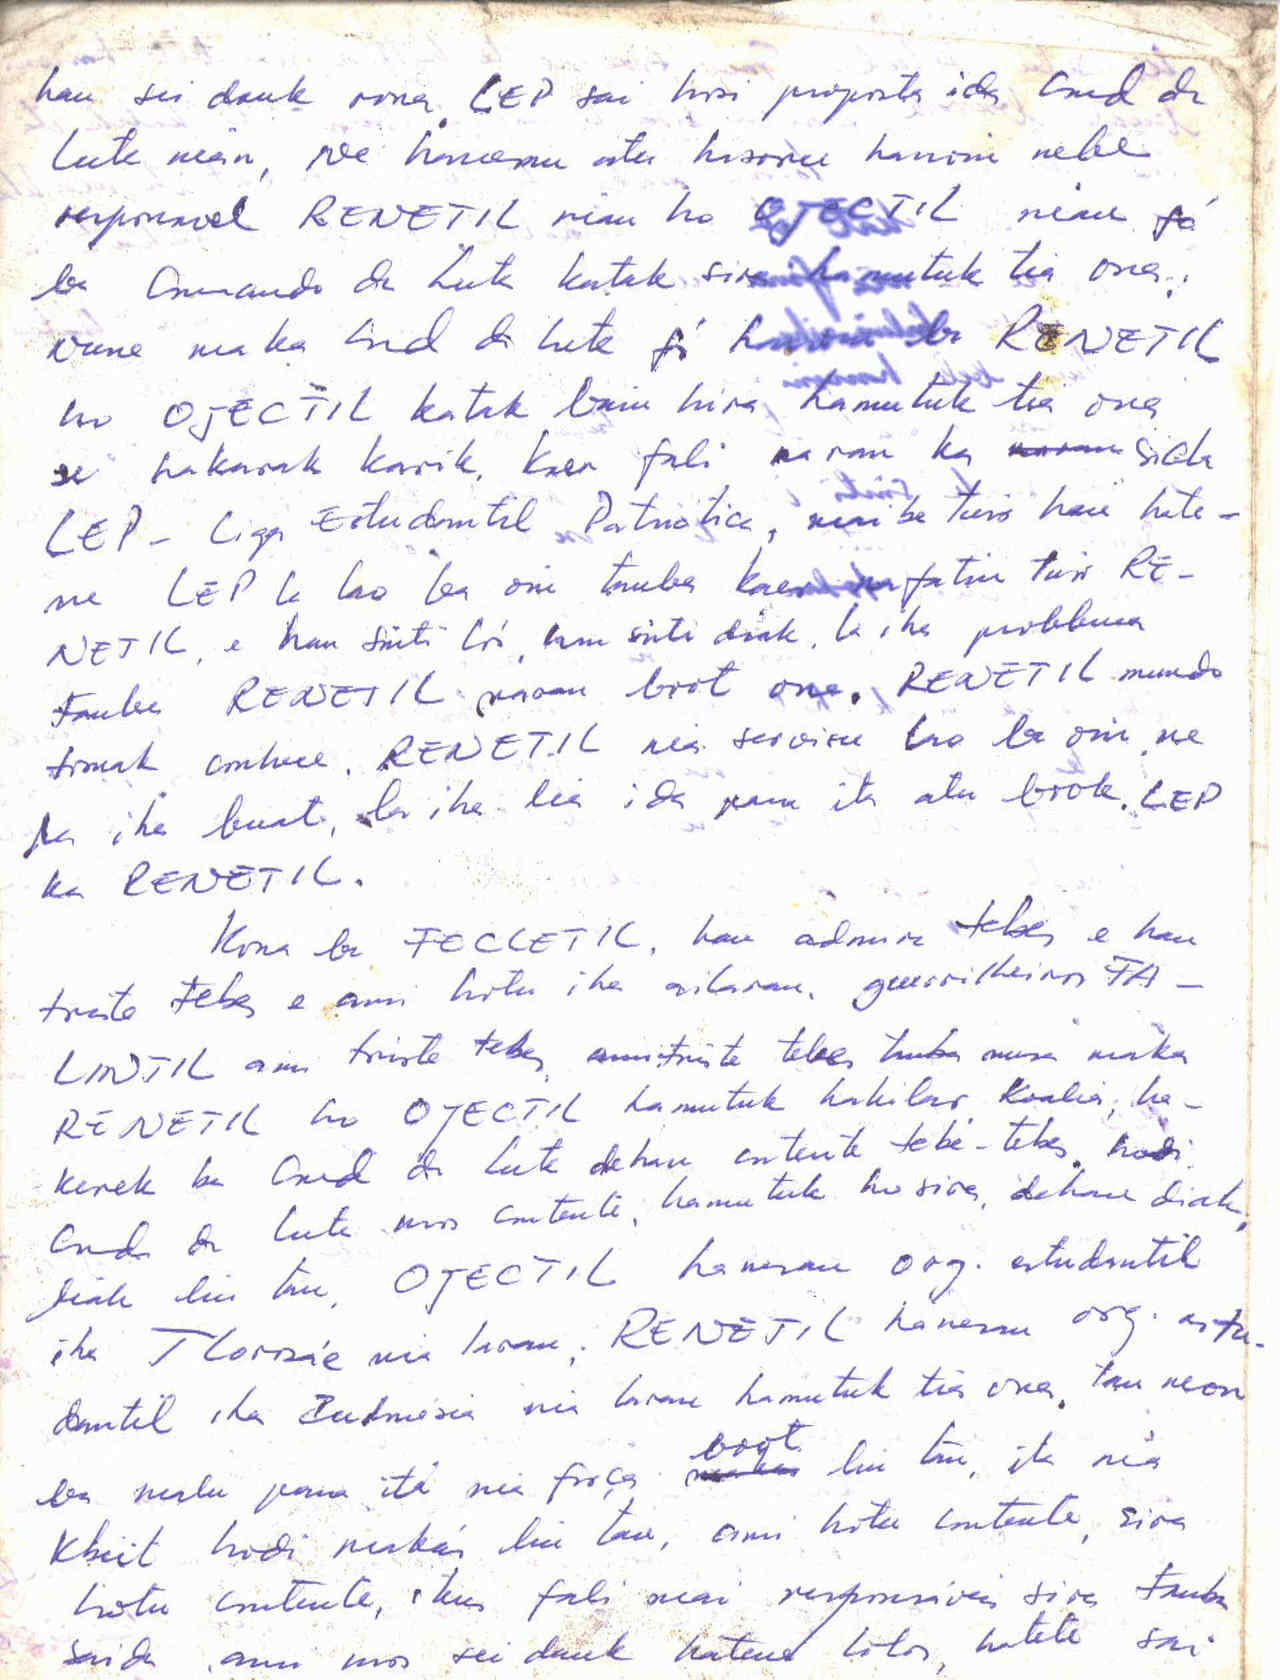 hau sei dauk rona. LEP sai husi proposta ida Cmd da
Luta nian, ne hanesan atu hasoru hanoin nebé
responsavel RENETIL nian ho OJECTIL nian fó
ba Comando da Luta katak sira hamutuk tia ona;
nune maka Cmd da Luta fó hanoin ba RENETIL
ho OJECTIL katak bain hira hamutuk tia ona
se hakarak karik, kaer fali naran ka sida
LEP - Liga Estudantil Patriotica, maibe tuir hau hate-
ne LEP la lao ba oin tauba kaer fatin tuir RE-
NETIL, e hau sinti loi, ami sinti diak, la iha problema
tauba RENETIL naran boot ona. RENETIL mundo
tomak conhece. RENETIL nia servisu lao ba oin, ne
la iha buat, la iha lia ida para ita atu book. LEP
ka RENETIL.
Kona ba FECLETIL, hau admira tebes e hau
triste tebes e ami hotu iha ailaran, guerrilheiros FA-
LINTIL ami triste tebes, ami triste tebes tuba nusa maka
RENETIL ho OJECTIL hamutuk hakilar, koalia, ha-
kerek ba Cmd da Luta dehan contente tebé-tebes, hodi
Cmd da Luta mos contente, hamutuk ho sira, dehan diak,
diak liu tan, OJECTIL hanesan org. estudantil
iha TLorosáe nia laran, RENETIL hanesan org. estu-
dantil iha Indonesia nia laran hamutuk tia ona, tau neon
ba malu para ita nia força boot liu tan, ita nia
kbiit hodi makás liu tan, ami hotu contente, sira
hotu contente, ikus fali mai responsáveis sira tauba
saida ami mos sei dauk hatene lolos, hatete sai